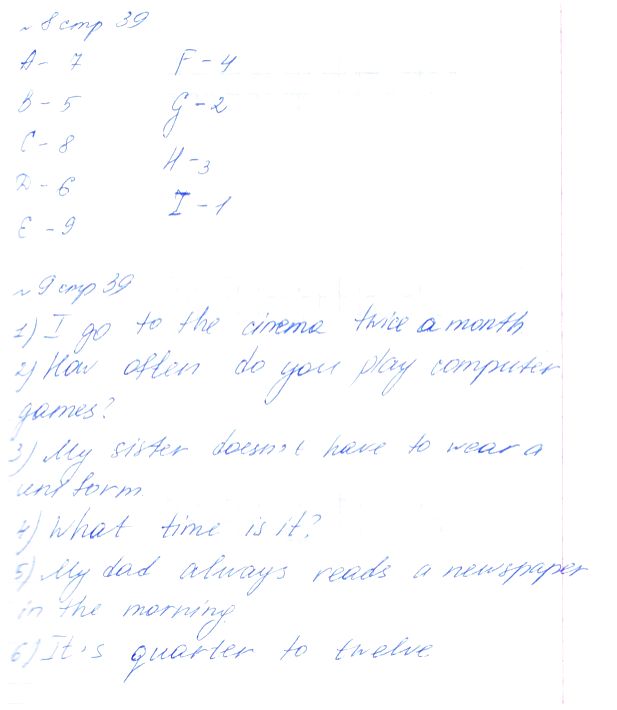 №8 стр 39
A - 7
B - 5
C - 8
D - 6
E - 9
F - 4
G - 2
H - 3
I - 1
№9 стр 39
1) I go to the cinema twice a month
2) How often do you play computer
games?
3) My sister doesn't have to wear a
uniform
4) What time is it?
5) My dad always reads a newspaper
in the morning
6) It's quarter to twelve